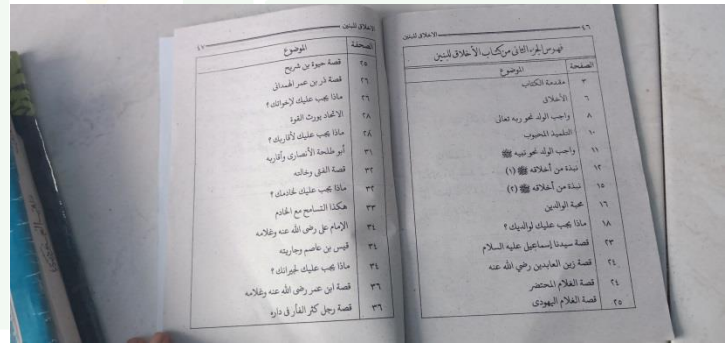 ٤٦ الاخلاق للبنين
فهرس الجزء الثاني من كتاب الأخلاق للبنين
الصفحة الموضوع
٣ مقدمة الكتاب
٦ الأخلاق
٨ واجب الولد نحو ربه تعالى
١٠ التلميذ المحبوب
١١ واجب الولد نحو نبيه ﷺ
١٢ نبذة من أخلاقه ﷺ (١)
١٥ نبذة من أخلاقه ﷺ (٢)
١٦ محبة الوالدين
١٨ ماذا يجب عليك لوالديك؟
٢٣ قصة سيدنا إسماعيل عليه السلام
٢٤ قصة زين العابدين رضي الله عنه
٢٤ قصة الغلام المحتضر
٢٥ قصة الغلام اليهودى
الاخلاق للبنين ٤٧
الصحفة الموضوع
٢٥ قصة حيوة بن شريح
٢٦ قصة ذر بن عمر الهمدانى
٢٦ ماذا يجب عليك لإخوانك؟
٢٨ الاتحاد يورث القوة
٢٨ ماذا يجب عليك لأقاربك؟
٣١ أبو طلحة الأنصارى وأقاربه
٣٢ قصة الفتى وخالته
٣٢ ماذا يجب عليك لخادمك؟
٣٣ هكذا التسامح مع الخادم
٣٤ الإمام على رضى الله عنه وغلامه
٣٤ قيس بن عاصم وجاريته
٣٤ ماذا يجب عليك لجيرانك؟
٣٦ قصة ابن عمر رضى الله عنه وغلامه
٣٦ قصة رجل كثر الفأر فى داره